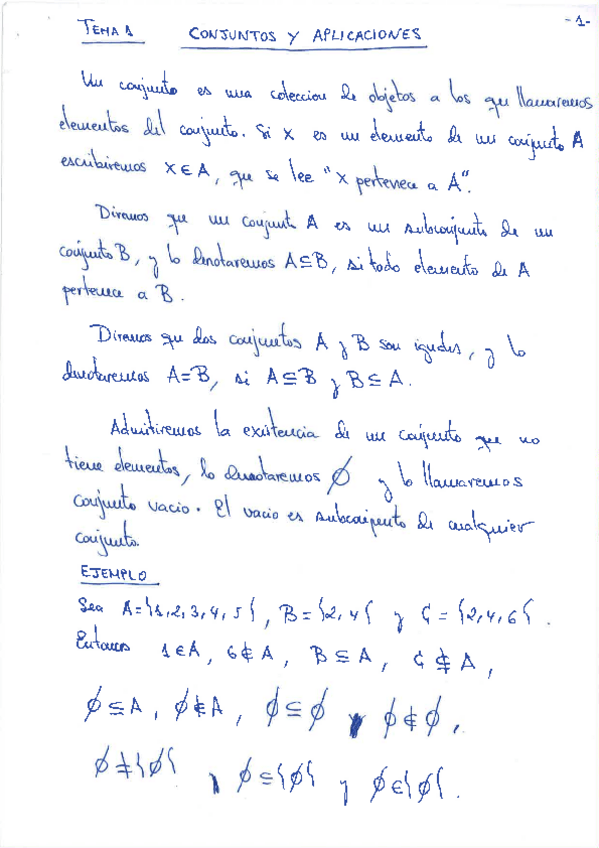 TEMA 1 CONJUNTOS Y APLICACIONES -1-
Un conjunto es una coleccion de objetos a los que llamaremos
elementos del conjunto. Si x es un elemento de un conjunto A
escribiremos x∈A, que se lee "x pertenece a A".
Diremos que un conjunto A es un subconjunto de un
conjunto B, y lo denotaremos A⊆B, si todo elemento de A
pertenece a B.
Diremos que dos conjuntos A y B son iguales, y lo
denotaremos A=B, si A⊆B y B⊆A.
Admitiremos la existencia de un conjunto que no
tiene elementos, lo denotaremos ∅ y lo llamaremos
conjunto vacio. El vacio es subconjunto de cualquier
conjunto.
EJEMPLO
Sea A={1,2,3,4,5}, B={2,4} y C={2,4,6}.
Entonces 1∈A, 6∉A, B⊆A, C⊈A,
∅⊆A, ∅∉A, ∅⊆∅ y ∅∉∅,
∅≠{∅} , ∅⊆{∅} y ∅∈{∅}.